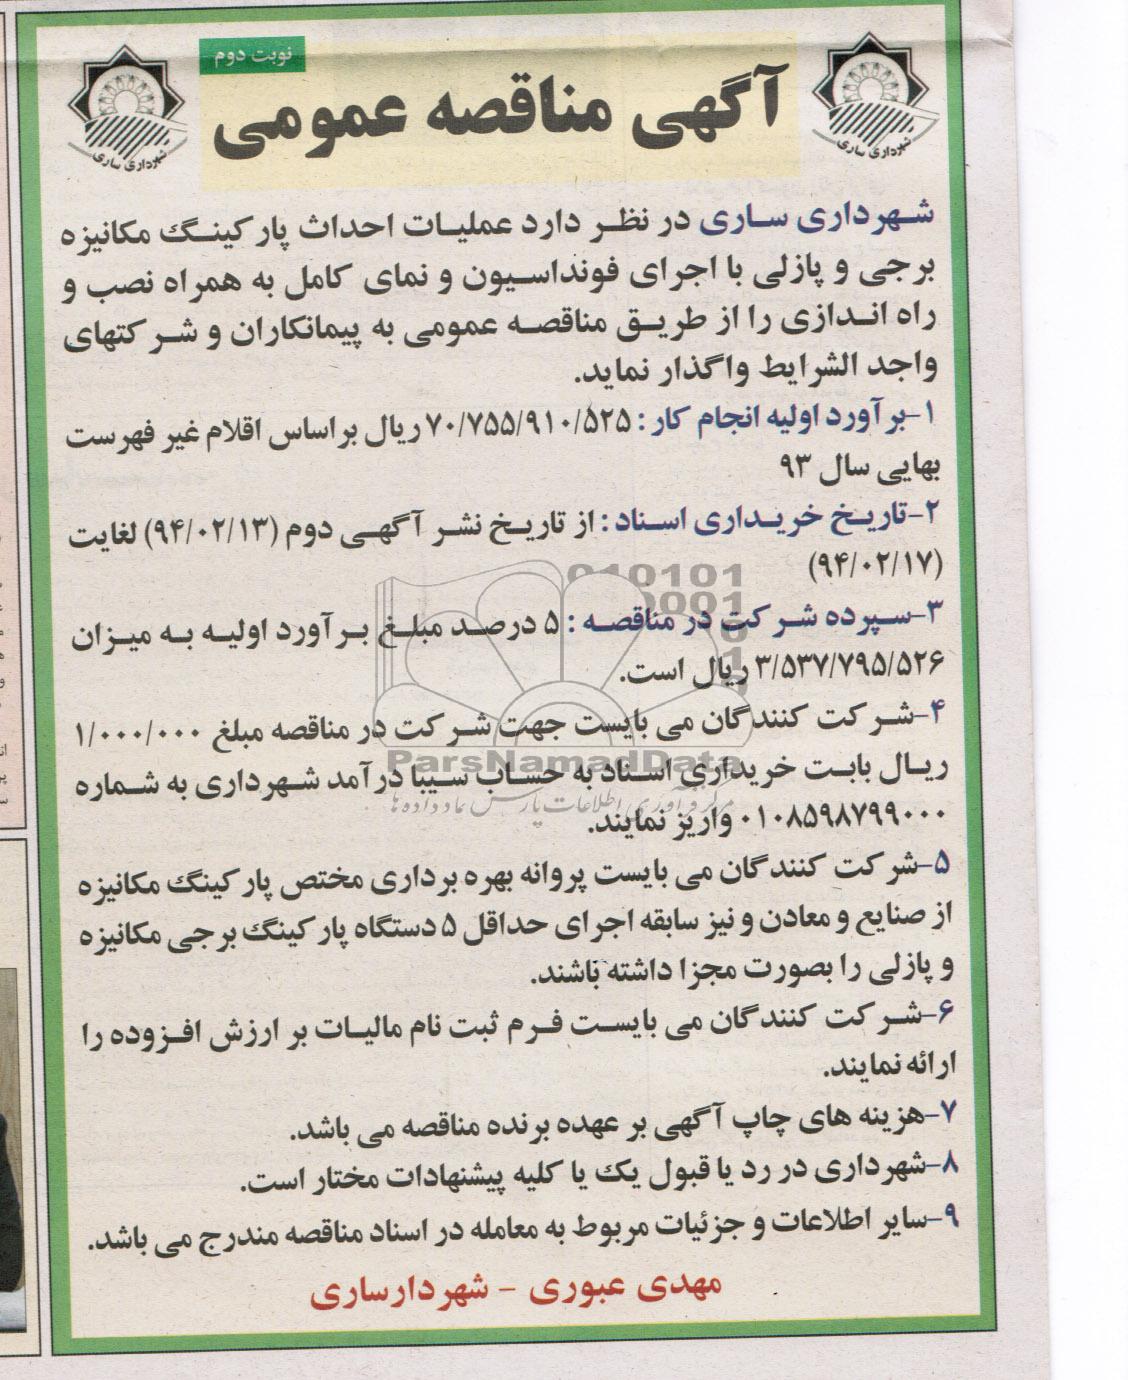 نوبت دوم
آگهی مناقصه عمومی
شهرداری ساری
شهرداری ساری
شهرداری ساری در نظر دارد عملیات احداث پارکینگ مکانیزه
برجی و پازلی با اجرای فونداسیون و نمای کامل به همراه نصب و
راه اندازی را از طریق مناقصه عمومی به پیمانکاران و شرکتهای
واجد الشرایط واگذار نماید.
۱-برآورد اولیه انجام کار: ۷۰/۷۵۵/۹۱۰/۵۲۵ ریال براساس اقلام غیر فهرست
بهایی سال ۹۳
۲-تاریخ خریداری اسناد: از تاریخ نشر آگهی دوم (۹۴/۰۲/۱۳) لغایت
(۹۴/۰۲/۱۷)
۳-سپرده شرکت در مناقصه: ۵ درصد مبلغ برآورد اولیه به میزان
۳/۵۳۷/۷۹۵/۵۲۶ ریال است.
۴-شرکت کنندگان می بایست جهت شرکت در مناقصه مبلغ ۱/۰۰۰/۰۰۰
ریال بابت خریداری اسناد به حساب سیبا درآمد شهرداری به شماره
۰۱۰۸۵۹۸۷۹۹۰۰۰ واریز نمایند.
۵-شرکت کنندگان می بایست پروانه بهره برداری مختص پارکینگ مکانیزه
از صنایع و معادن و نیز سابقه اجرای حداقل ۵ دستگاه پارکینگ برجی مکانیزه
و پازلی را بصورت مجزا داشته باشند.
۶-شرکت کنندگان می بایست فرم ثبت نام مالیات بر ارزش افزوده را
ارائه نمایند.
۷-هزینه های چاپ آگهی بر عهده برنده مناقصه می باشد.
۸-شهرداری در رد یا قبول یک یا کلیه پیشنهادات مختار است.
۹-سایر اطلاعات و جزئیات مربوط به معامله در اسناد مناقصه مندرج می باشد.
مهدی عبوری - شهردارساری
ParsNamadData
مرکز فرآوری اطلاعات پارس نماد داده ها